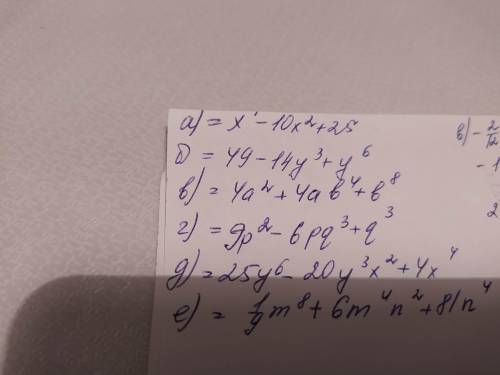 а) = x⁴ - 10x² + 25
б) = 49 - 14y³ + y⁶
в) = 4a² + 4ab⁴ + b⁸
г) = 9p² - 6pq³ + q³
д) = 25y⁶ - 20y³x² + 4x⁴
е) = 1/9 m⁸ + 6m⁴n² + 81n⁴
в) - 2/12
- 1
2